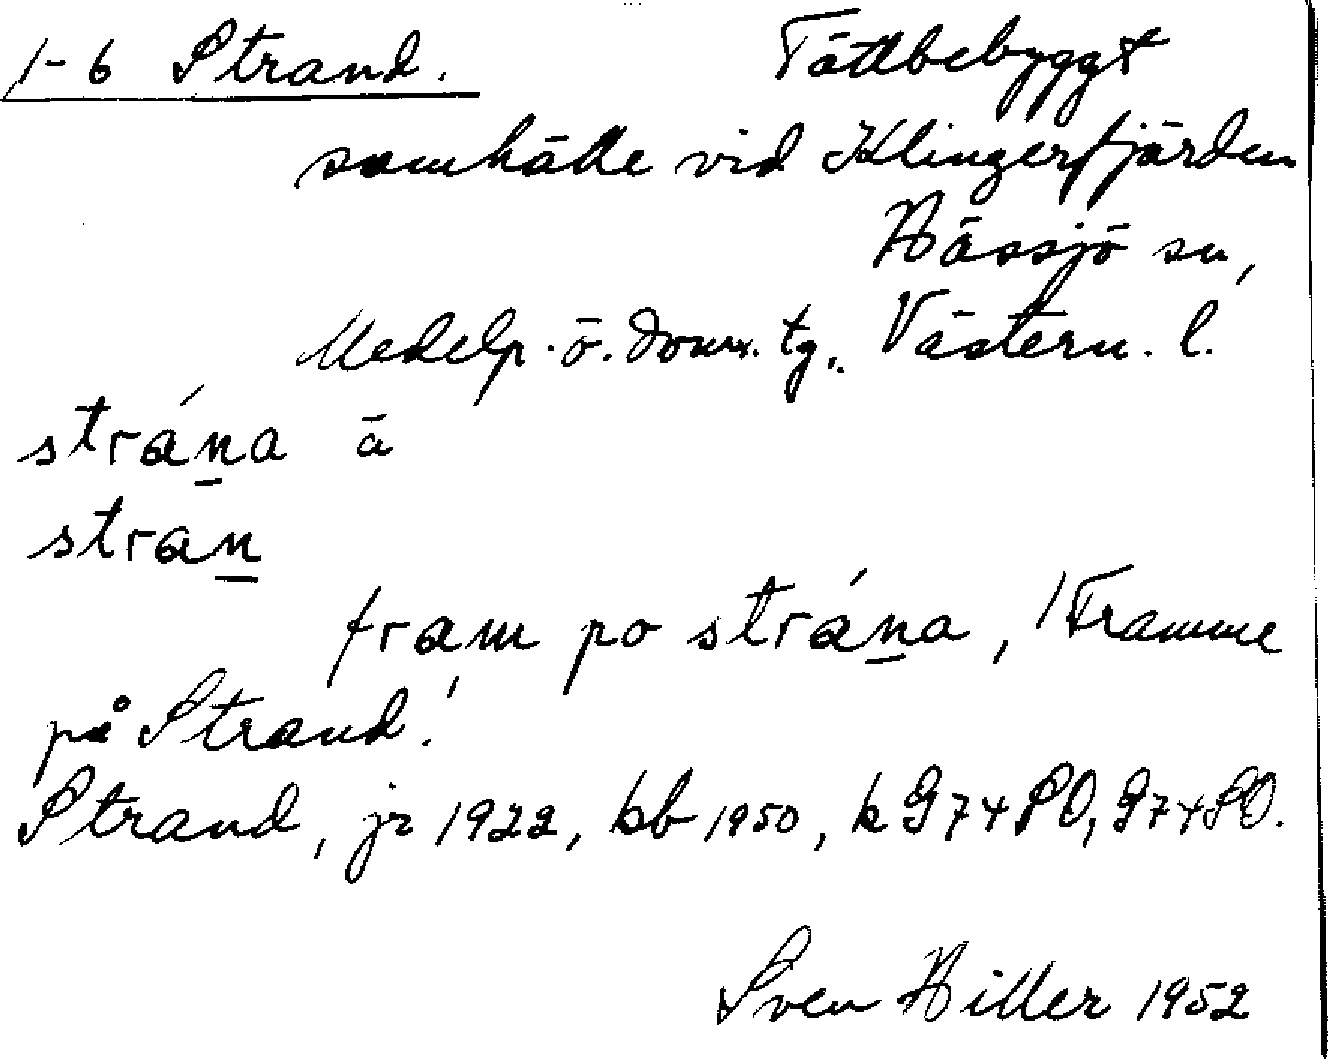 1-6 Strand. Tättbebyggt
samhälle vid Klingerfjärden
Hässjö sn,
Medelp. ö. doms. tg., Västern. l.
strána ā
stran
fram po strána, 'Framme
på Strand.'
Strand, jr 1922, kb 1950, k G74SO, G74SO.
Sven Hiller 1952